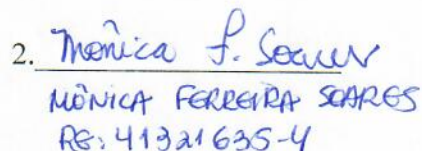 2. Mônica F. Soares
MÔNICA FERREIRA SOARES
RG: 41321635-4